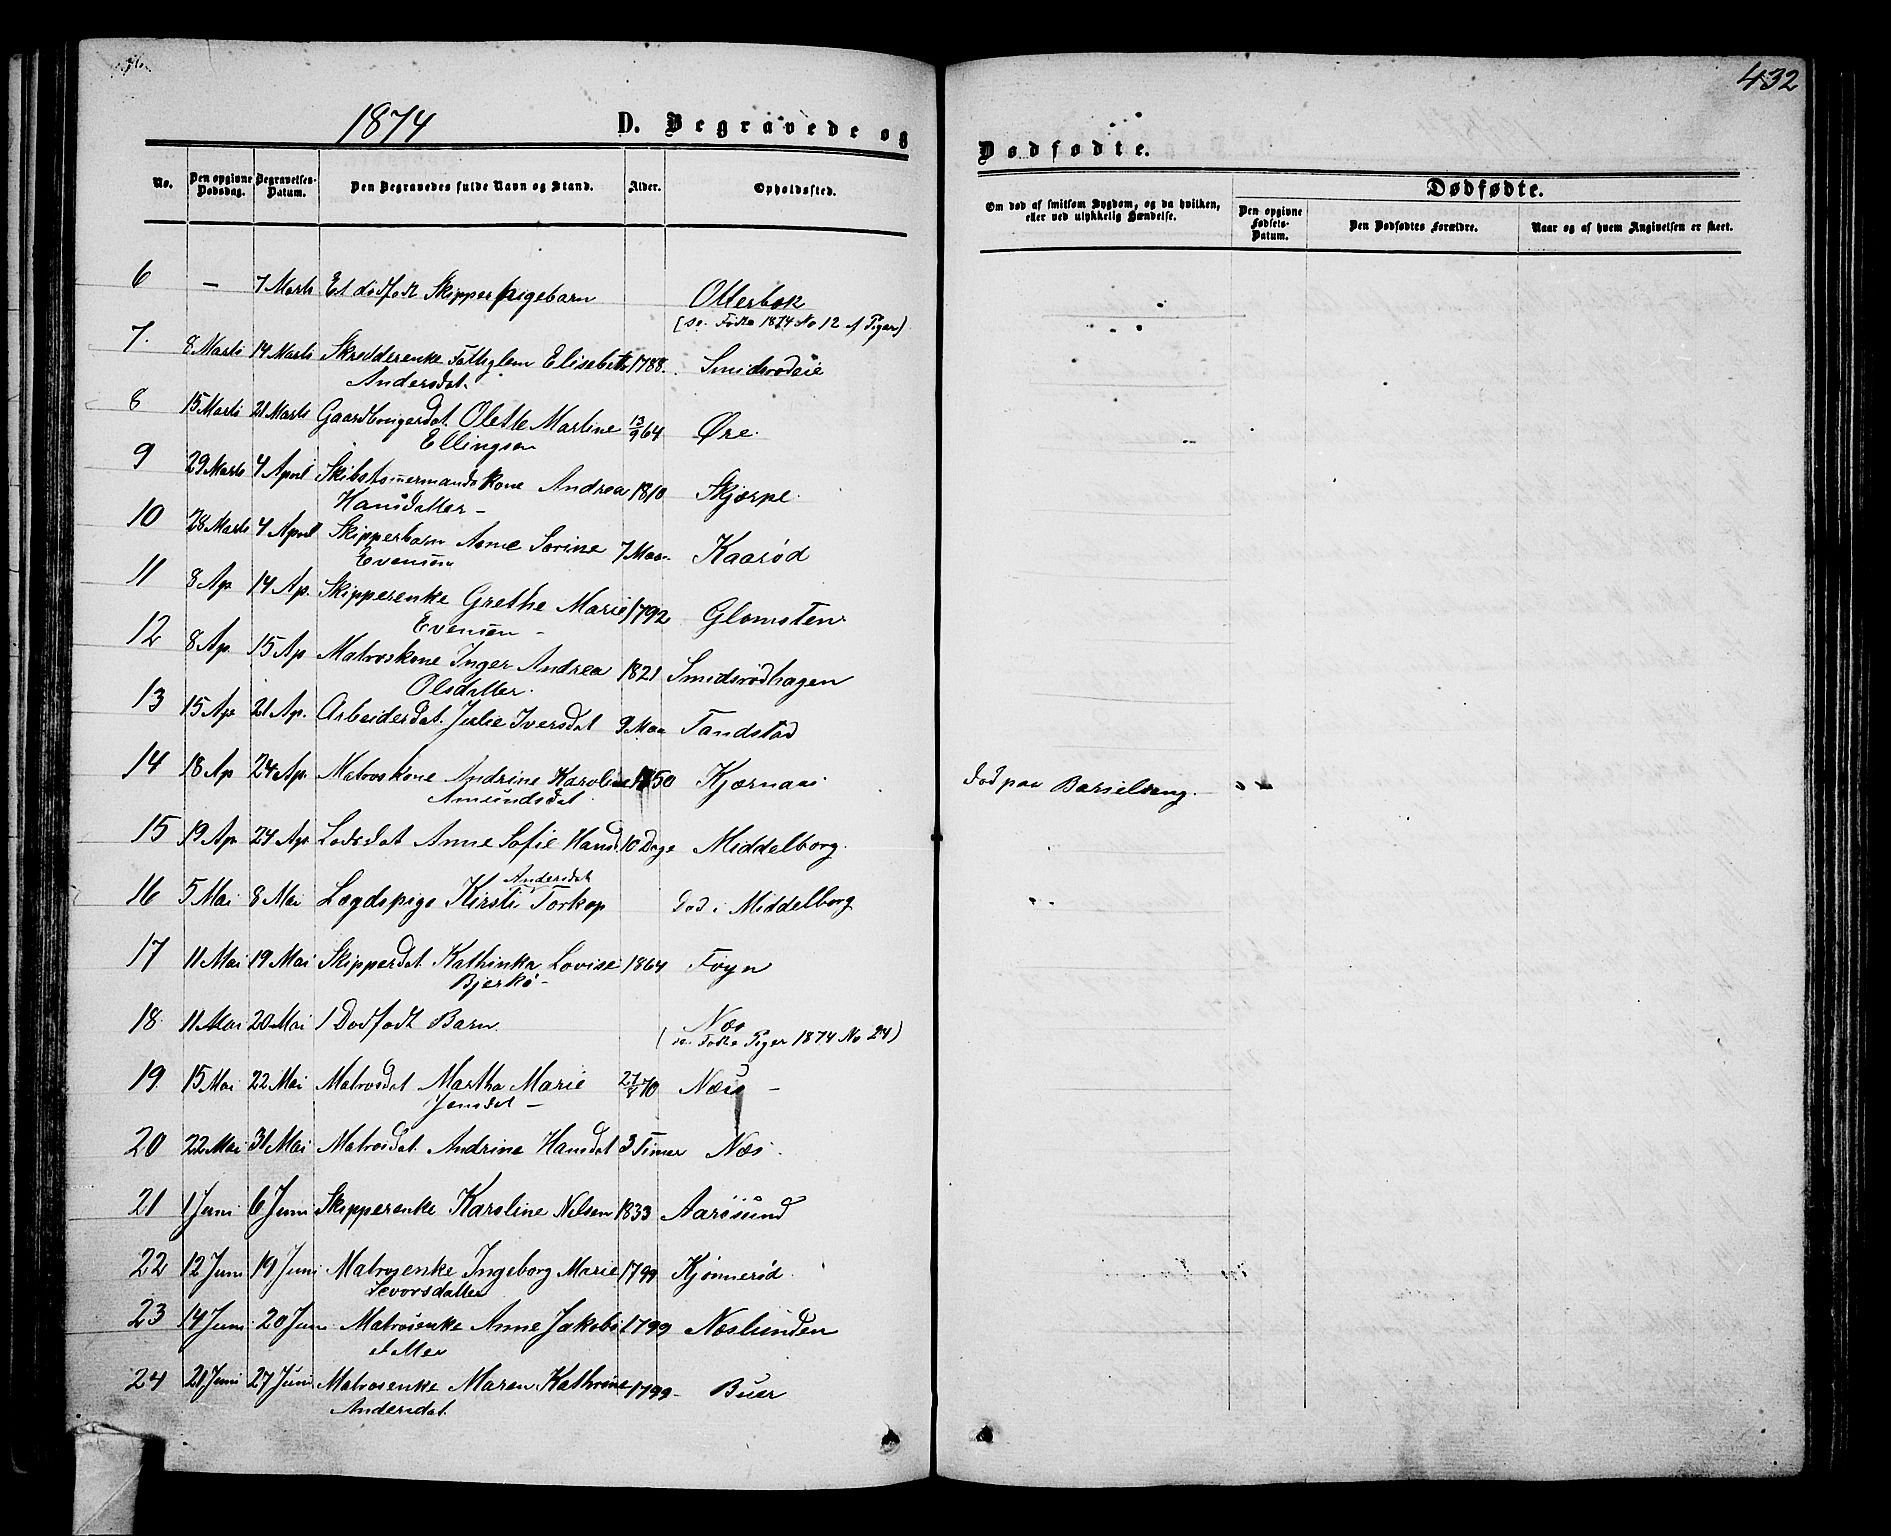 432
1874 D. Begravede og
Dødfødte.
No. Den opgivne Dødsdag. Begravelses-Datum. Den Begravedes fulde Navn og Stand. Alder. Opholdssted.
Om død af smitsom Sygdom, og da hvilken, eller ved ulykkelig Hændelse.
Dødfødte.
Den opgivne Fødsels-Datum. Den Dødfødtes Forældre. Naar og af hvem Angivelsen er skeet.
6 — 7 Marts Et dødfødt Skipper pigebarn Otterbæk
(se Fødte 1874 No 12 af Piger)
7. 8 Marts 14 Marts Skrædderenke Fattiglem Elisabeth 1788. Smidsrødeie
Andersdat.
8 15 Marts 21 Marts Gaardbrugerdat. Olette Martine 13/9 64 Øre.
Ellingsen
9 29 Marts 4 April Skibstømermands Kone Andrea 1810 Skjærpe.
Hansdatter —
10 28 Marts 4 April Skipperbarn Anne Sorine 7 Maa. Kaarød
Evensen
11 8 Ap. 14 Ap. Skipperenke Grethe Marie 1792 Glomsten
Evensen —
12 8 Ap. 15 Ap Matroskone Inger Andrea 1821 Smidsrødhagen
Olsdatter.
13 15 Ap. 21 Ap. Arbeidersdat. Julie Iversdat 9 Maa Tandstad
14 18 Ap 24 Ap. Matroskone Andrine Karoline 1850 Kjærnaas Død paa Barselseng.
Amundsdat.
15 19 Ap. 24 Ap. Lodsdat Anne Sofie Hansd. 10 Dage Middelborg.
Andersdat
16 5 Mai 8 Mai Lægdspige Kirsti Torkop Død i Middelborg
17 11 Mai 19 Mai Skipperdat. Kathinka Lovise 1864 Føyn
Bjerkø —
18. 11 Mai 20 Mai 1 Dødfødt Barn. Næs
(se Fødte Piger 1874 No 24)
19. 15 Mai 22 Mai Matrosdat Martha Marie 27/8 70 Næs —
Jensdat —
20 22 Mai 31 Mai Matrosdat. Andrine Hansdat 3 Timer Næs.
21 1 Juni 6 Juni Skipperenke Karoline Nilsen 1833 Aarøsund
22 12 Juni 19 Juni Matrosenke Ingeborg Marie 1799 Kjønnerød.
Sevorsdatter
23 14 Juni 20 Juni Matrosenke Anne Jakobs 1799 Næslunden
datter
24 21 Juni 27 Juni Matrosenke Maren Kathrine 1799- Buer
Andersdat.